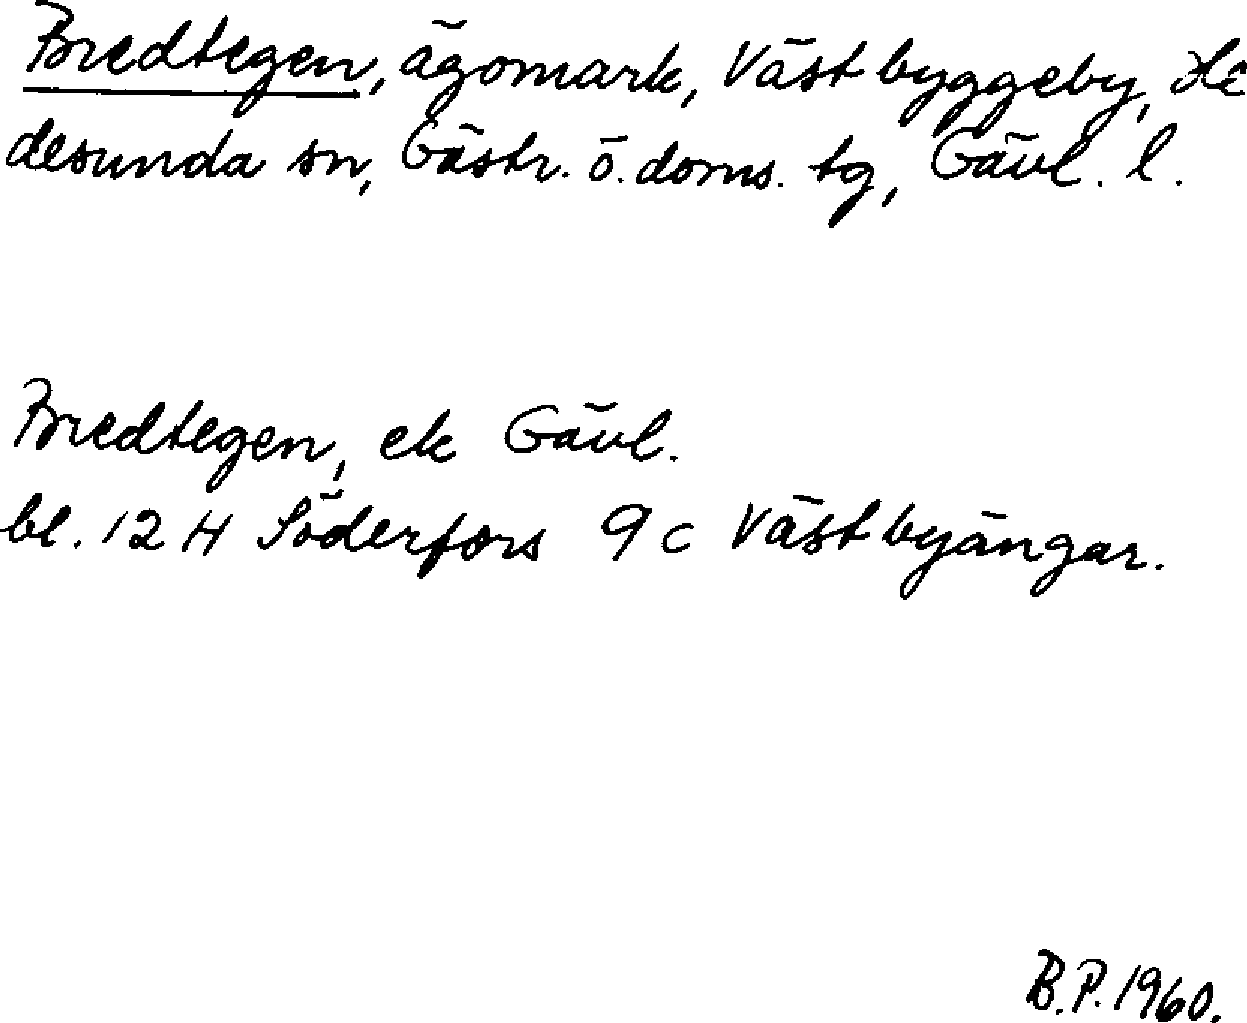 Bredtegen, ägomark, Västbyggeby, He
desunda sn, Gästr. ö. doms. tg, Gävl. l.
Bredtegen, ek Gävl.
bl. 12 H Söderfors 9 c Västbyängar.
B.P. 1960.